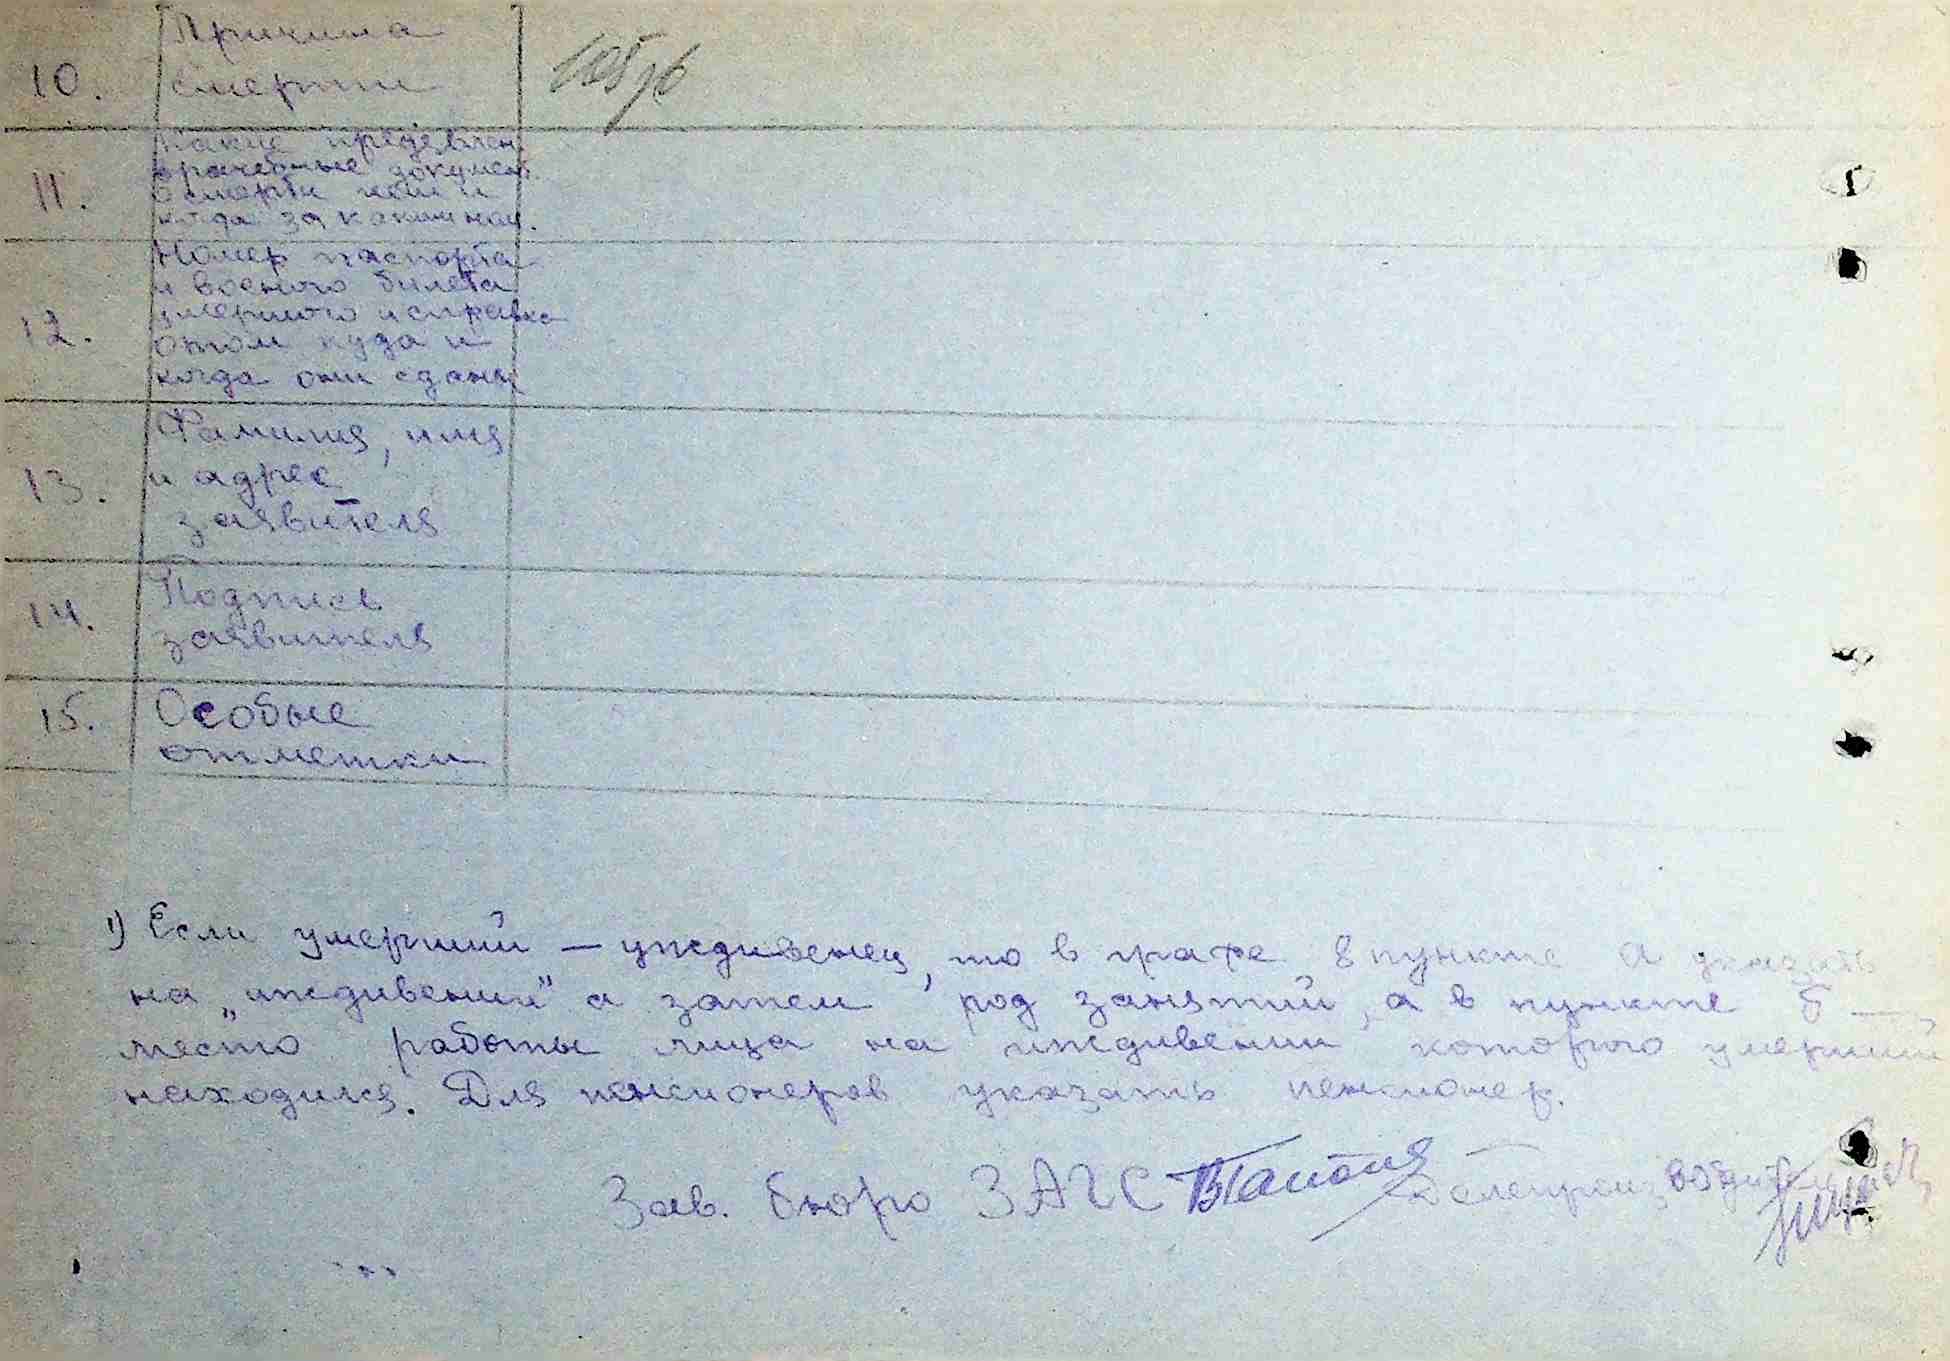 10. Причина
смерти
11. Какие предъявлен.
врачебные докумен.
о смерти кем и
когда за каким ном.
12. Номер паспорта
и военого билета
умершого и справка
отом куда и
когда они сданы
13. Фамилия, имя
и адрес
заявителя
14. Подпись
заявителя
15. Особые
отметки
1) Если умерший — уждивенец, то в графе 8 пункте а указать
на „иждивении" а затем род занятий, а в пункте б —
место работы лица на иждивении которого умерший
находился. Для пенсионеров указать пенсионер.
Зав. бюро ЗАГС Делопроизводитель